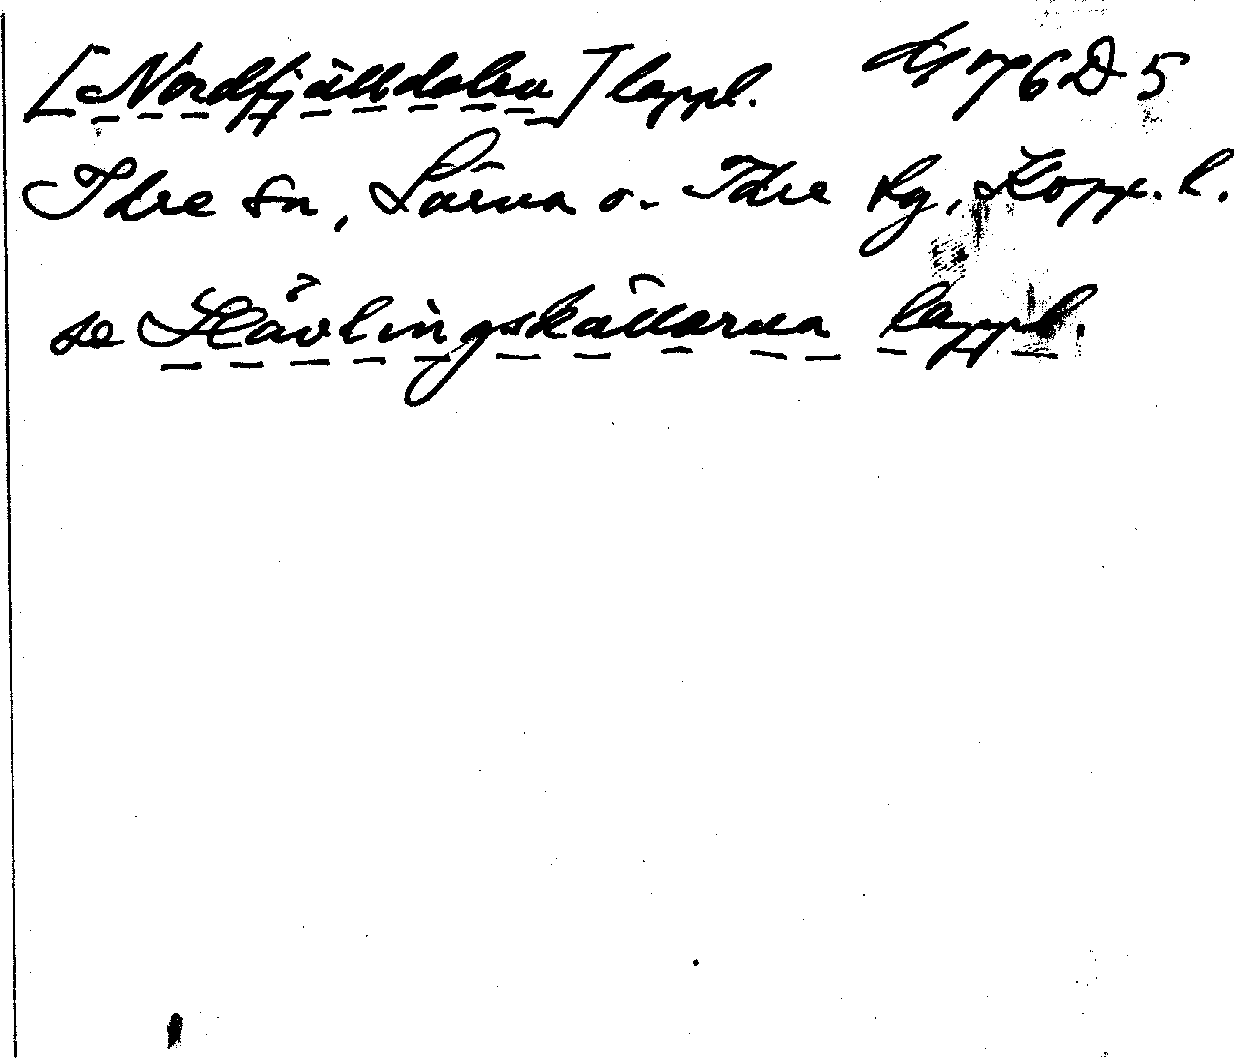 [Nordfjälldalen] lappl. 76 D 5
Idre sn, Särna o. Idre tg, Kopp. l.
se Hävlingskällorna lappl.